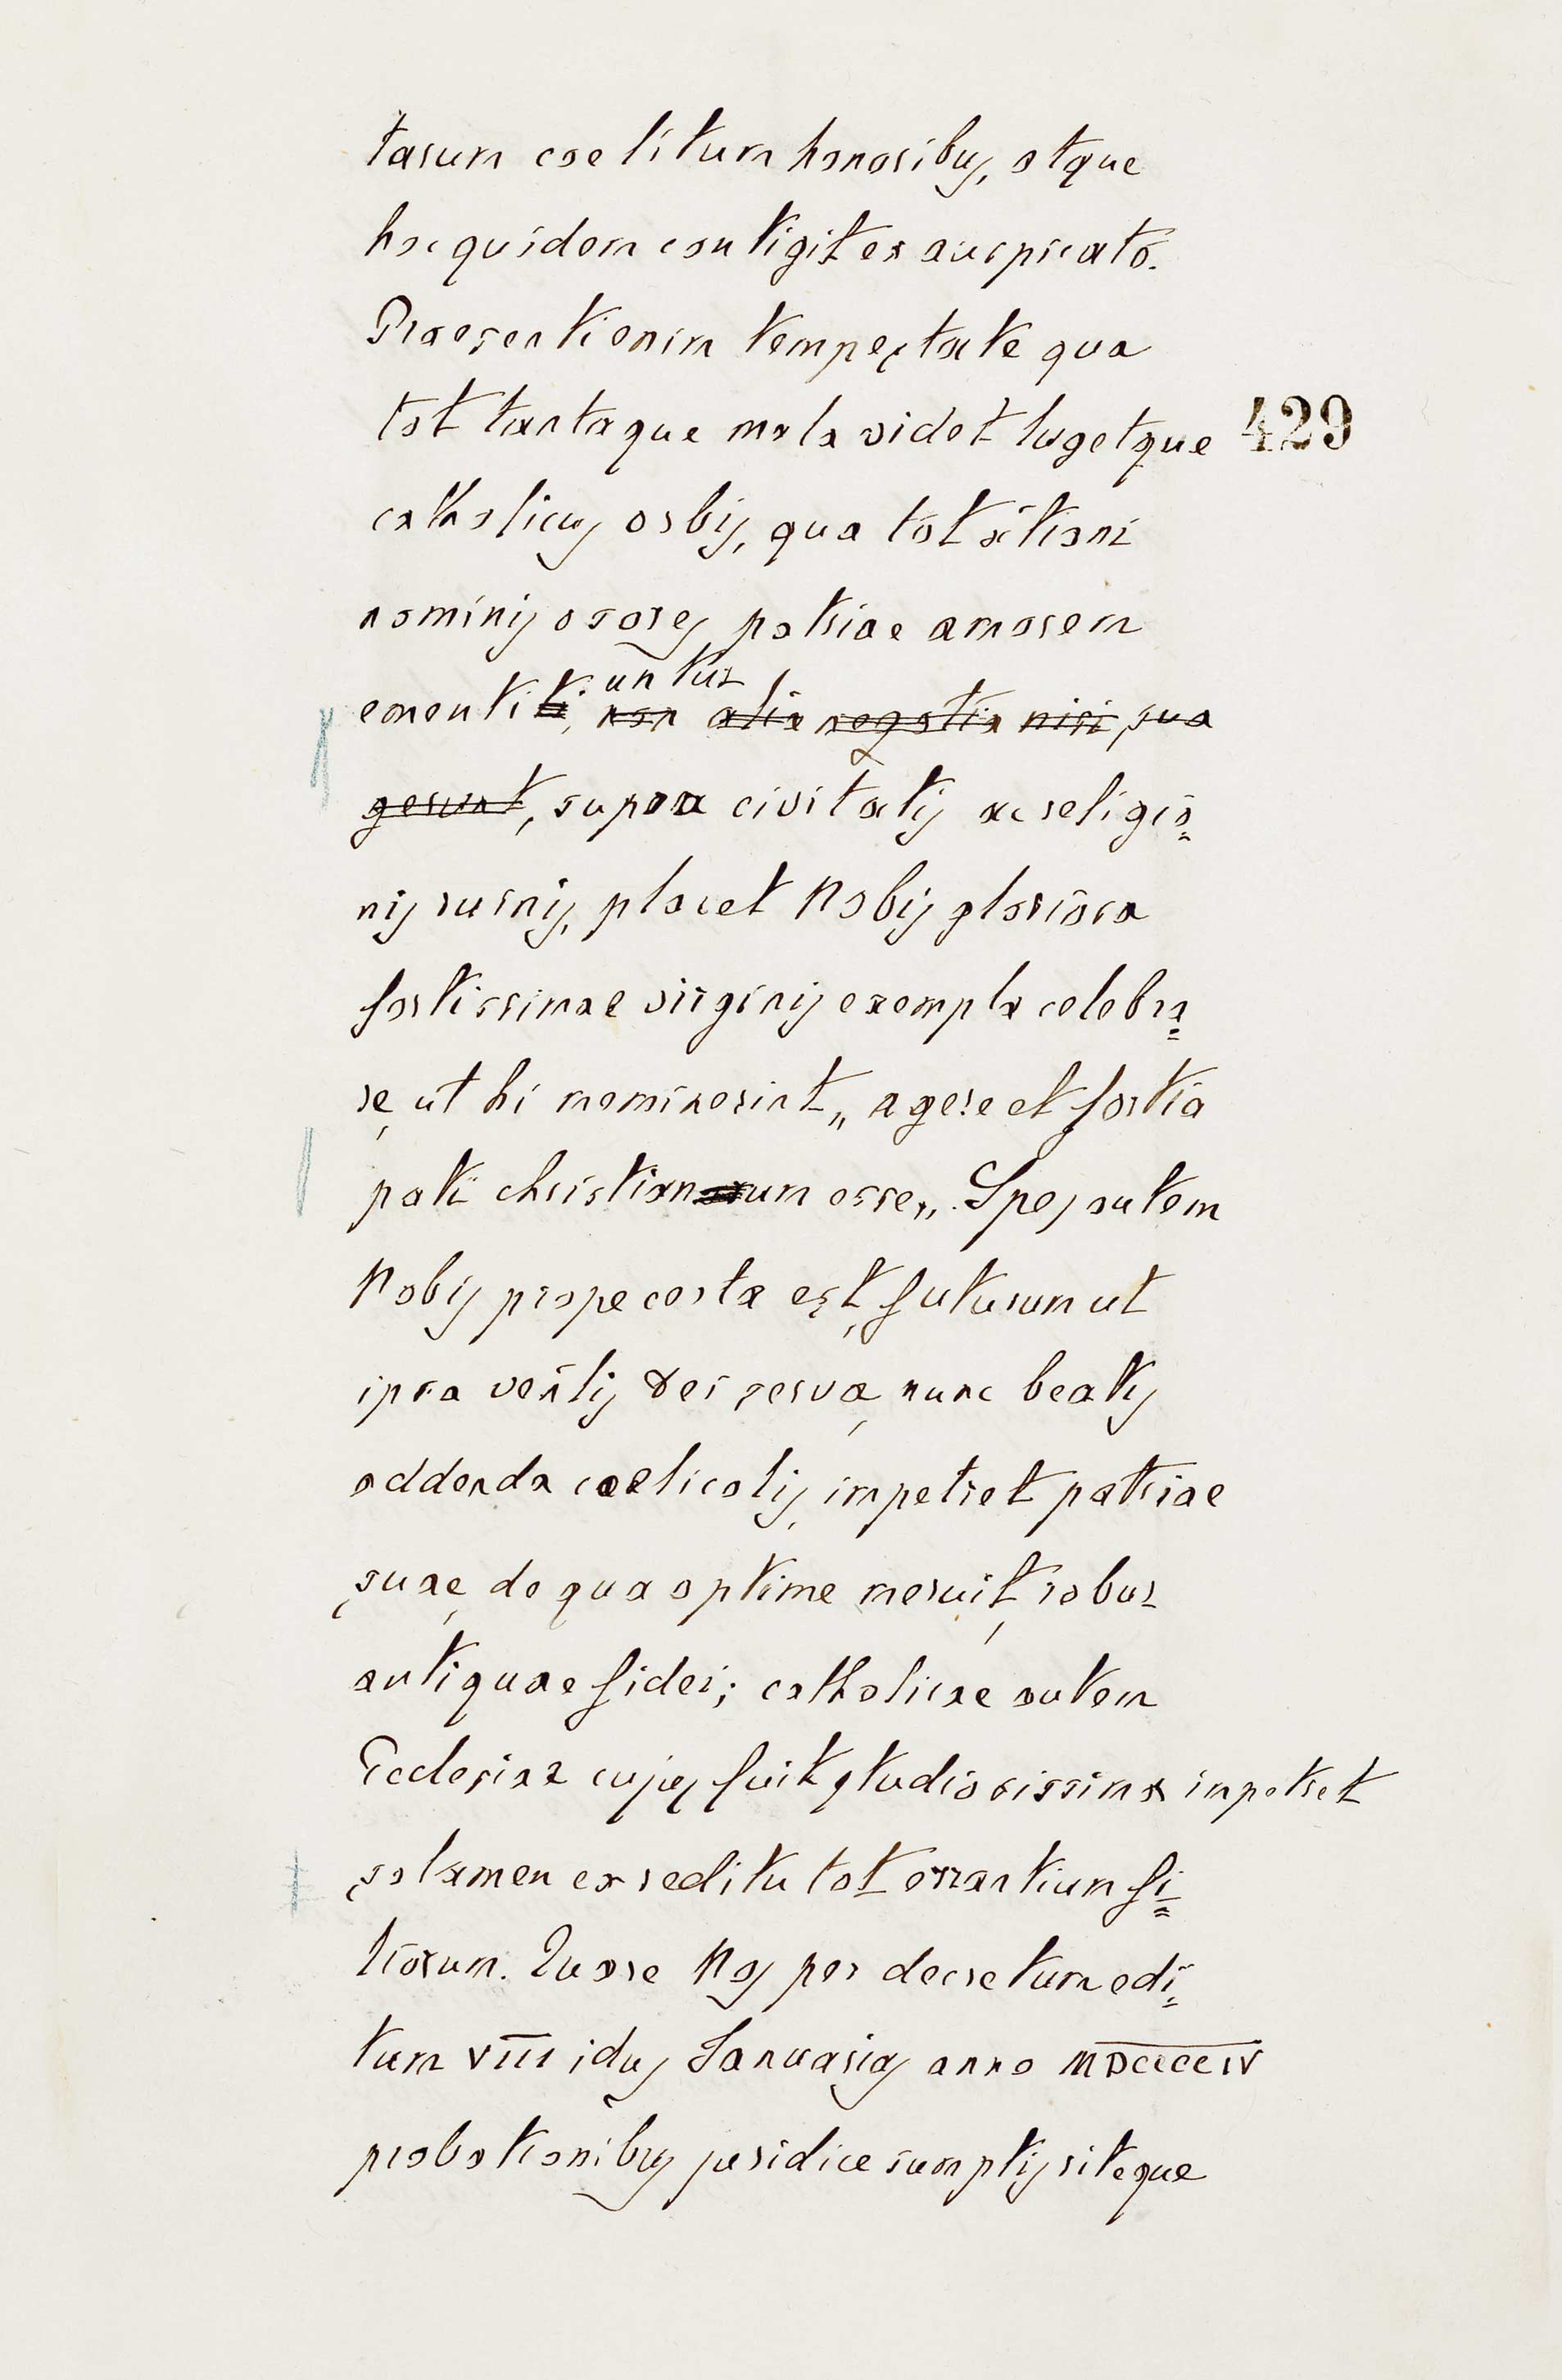 tarum coelitum honoribus, atque
hoc quidem contigit ex auspicato.
Praesenti enim tempestate qua
tot tantaque mala videt lugetque
429
catholicus orbis, qua tot xtiani
nominis osores patriae amorem
untur
ementiti, non alia negotia nisi sua
gerunt, supra civitatis ac religio=
nis ruinis, placet Nobis gloriosa
fortissimae virginis exempla celebra=
re, ut hi meminerint „ agere et fortia
pati christianorum esse„. Spes autem
Nobis prope certa est, futurum ut
ipsa venlis Dei serva, nunc beatis
addenda coelicolis, impetret patriae
suae, de qua optime meruit, robur
antiquae fidei; catholicae autem
Ecclesiae cujus fuit studiosissima impetret
solamen ex reditu tot errantium fi=
liorum. Quare Nos per decretum edi=
tum VIII idus Januarias anno MDCCCCIV
probationibus juridice sumptis riteque